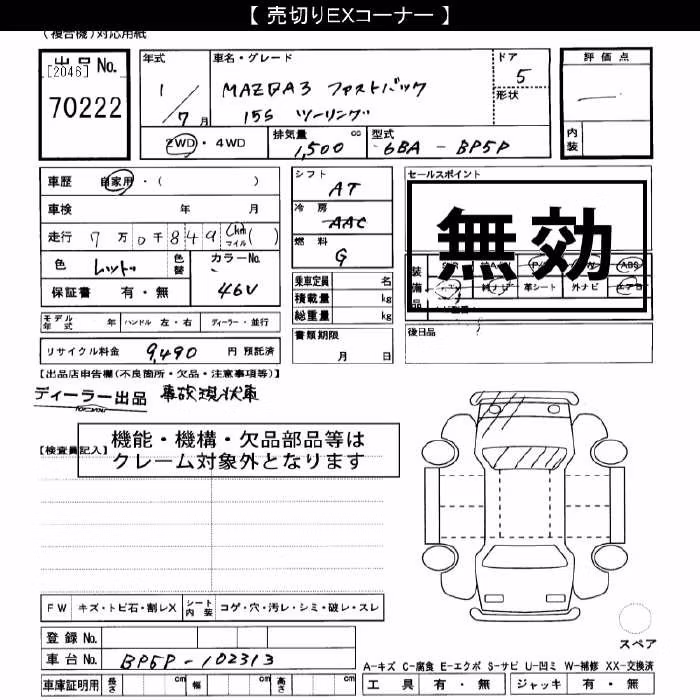 【 売切りEXコーナー 】
(複合機)対応用紙
出品 No.
[2046]
70222
年式
1 / 7 月
車名・グレード
MAZDA3 ファストバック
15S ツーリング
ドア
5
形状
評価点
内装
2WD・4WD
排気量 cc
1,500
型式
6BA - BP5P
車歴 自家用・( )
車検 年 月
走行 7 万 0 千 8 4 9 km マイル ( )
色 レッド 色替
カラーNo.
46V
保証書 有・無
シフト
AT
冷房
AAC
燃料
G
乗車定員 名
積載量 kg
総重量 kg
セールスポイント
無効
装備品
ABS
革シート 外ナビ エアB
モデル年式 年 ハンドル 左・右 ディーラー・並行
書類期限
月 日
後日品
リサイクル料金 9,490 円 預託済
【出品店申告欄(不良箇所・欠品・注意事項等)】
ディーラー出品 事故現状車
【検査員記入】
機能・機構・欠品部品等は
クレーム対象外となります
FW キズ・トビ石・割レX シート内装 コゲ・穴・汚レ・シミ・破レ・スレ
登録 No.
車台 No. BP5P-102313
車庫証明用 長さ cm 幅 cm 高さ cm
スペア
A-キズ C-腐食 E-エクボ S-サビ U-凹ミ W-補修 XX-交換済
工具 有・無 ジャッキ 有・無